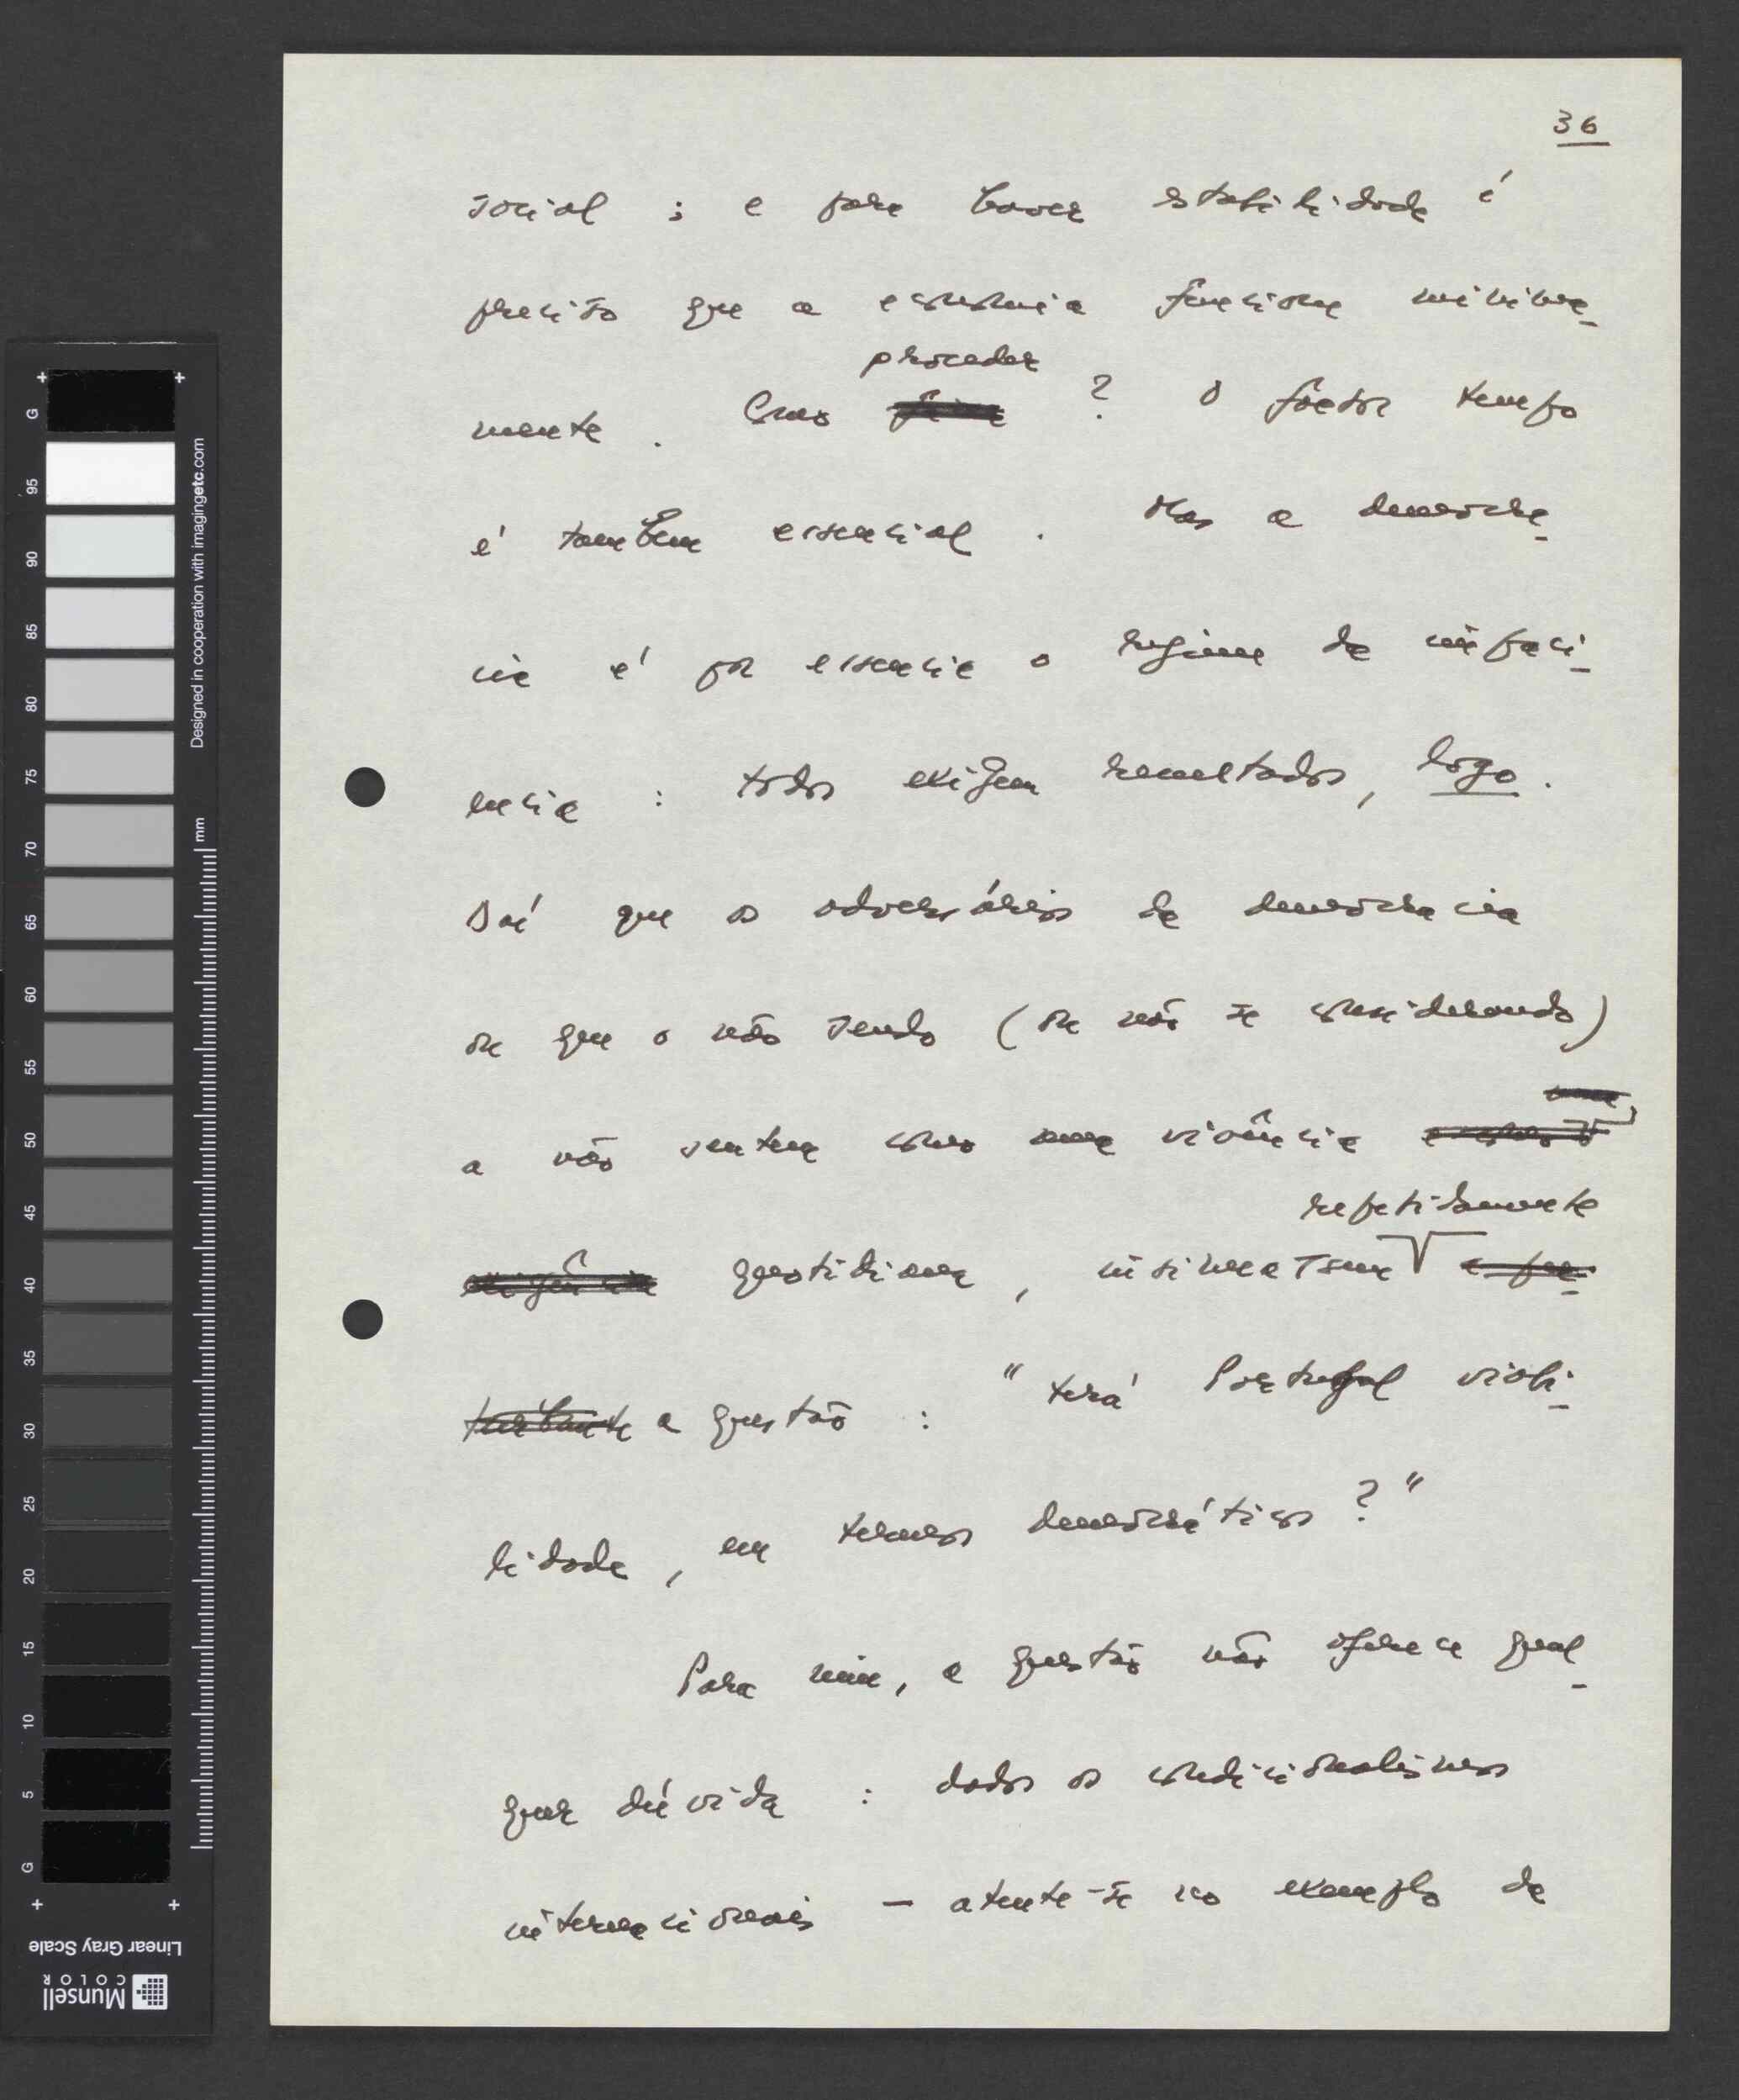 36
social ; e para haver estabilidade é
preciso que a economia funcione minima-
proceder
mente . Como ? O factor tempo
é também essencial . Mas a democra-
cia é por essencia o regime da impaci-
encia : todos exigem resultados, logo.
Daí que os adversários da democracia
ou que o não sendo (ou não se considerando)
a não sentem como uma vivência
repetidamente
quotidiana , insinuassem
a questão : " terá Portugal viabi-
lidade , em termos democráticos ? "
Para mim, a questão não oferece qual-
quer dúvida : dados os condicionalismos
internacionais – atente-se no exemplo da
G
95
90
85
80
75
70
65
60
55
50
45
40
35
30
25
20
15
10
5
G
Designed in cooperation with imagingetc.com
mm
Linear Gray Scale
Munsell
COLOR